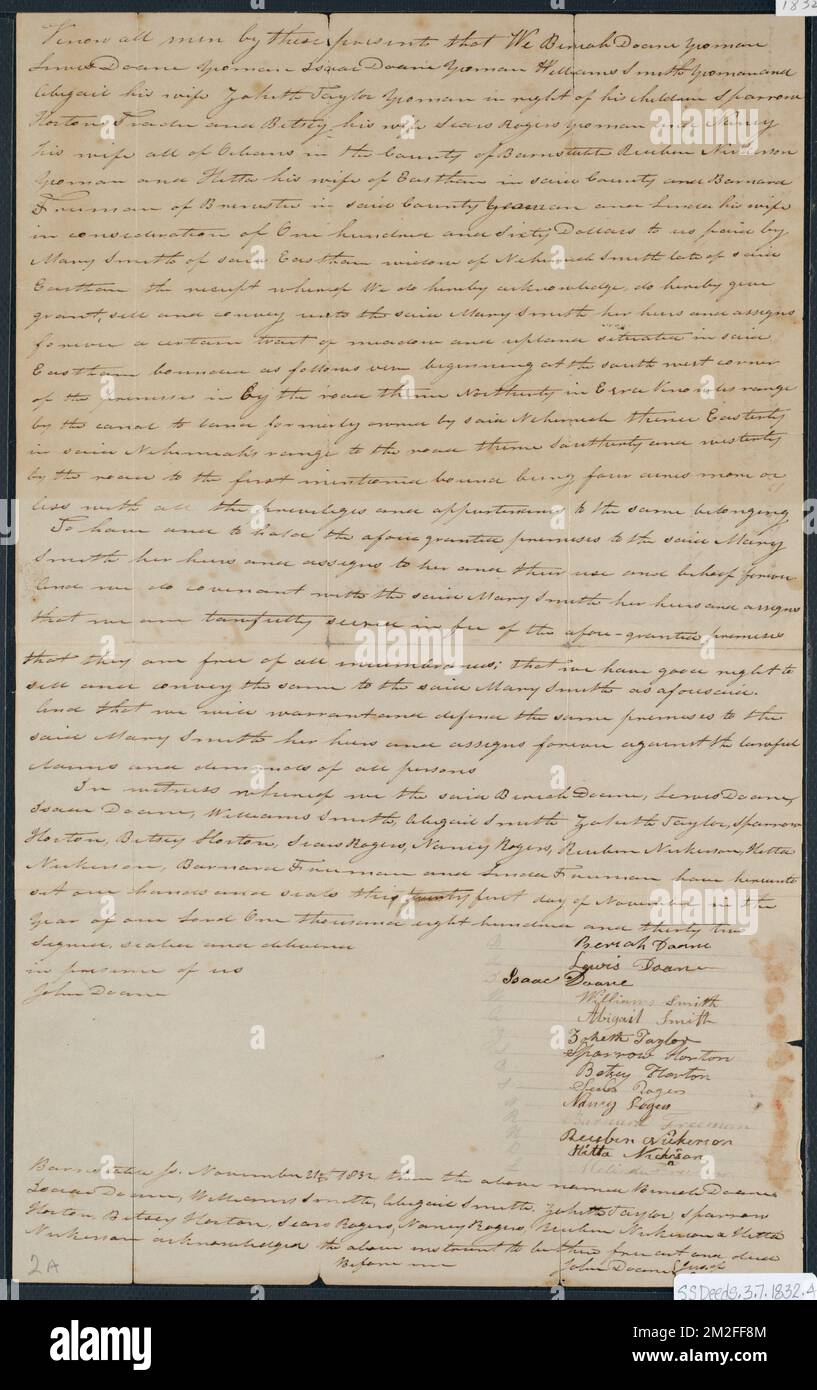 1832
Know all men by these presents that We Beriah Doane Yeoman
Lewis Doane Yeoman Isaac Doane Yeoman Williams Smith Yeoman and
Abigail his wife Zoheth Taylor Yeoman in right of his children Sparrow
Horton Trader and Betsey his wife Sears Rogers Yeoman and Nancy
his wife all of Orleans in the County of Barnstable Reuben Nickerson
Yeoman and Hitta his wife of Eastham in said County and Barnard
Freeman of Brewster in said County Yeoman and Linda his wife
in consideration of One hundred and Sixty Dollars to us paid by
Mary Smith of said Eastham widow of Nehemiah Smith late of said
Eastham the receipt whereof We do hereby acknowledge, do hereby give
grant, sell and convey unto the said Mary Smith her heirs and assigns
forever a certain tract of meadow and upland situated in said
Eastham bounded as follows viz beginning at the south west corner
of the premises in by the road thence Northerly in Ezra Knowles range
by the canal to land formerly owned by said Nehemiah thence Easterly
in said Nehemiahs range to the road thence Southerly and westerly
by the road to the first mentioned bound being four acres more or
less with all the priveleges and appurtenances to the same belonging
To have and to hold the afore granted premises to the said Mary
Smith her heirs and assigns to her and their use and behoof forever
And we do covenant with the said Mary Smith her heirs and assigns
that we are lawfully seized in fee of the afore-granted premises
that they are free of all incumbrances; that we have good right to
sell and convey the same to the said Mary Smith as aforesaid.
And that we will warrant and defend the same premises to the
said Mary Smith her heirs and assigns forever against the lawful
claims and demands of all persons
In witness whereof we the said Beriah Doane, Lewis Doane,
Isaac Doane, Williams Smith, Abigail Smith Zoheth Taylor, Sparrow
Horton, Betsey Horton, Sears Rogers, Nancy Rogers, Reuben Nickerson, Hitta
Nickerson, Barnard Freeman and Linda Freeman have hereunto
set our hands and seals this twenty first day of November in the
Year of our Lord One thousand eight hundred and thirty two
Signed, sealed and delivered
in presence of us
John Doane
Beriah Doane
Lewis Doane
Isaac Doane
Williams Smith
Abigail Smith
Zoheth Taylor
Sparrow Horton
Betsey Horton
Sears Rogers
Nancy Rogers
Barnard Freeman
Reuben Nickerson
Hitta Nickerson
Barnstable Ss. November 21st 1832 then the above named Beriah Doane
Isaac Doane, Williams Smith, Abigail Smith, Zoheth Taylor, Sparrow
Horton, Betsey Horton, Sears Rogers, Nancy Rogers, Reuben Nickerson & Hitta
Nickerson acknowledged the above instrument to be their free act and deed
Before me John Doane
2A
SSDeeds.3.7.1832.4
alamy
Image ID: 2M2FF8M
www.alamy.com